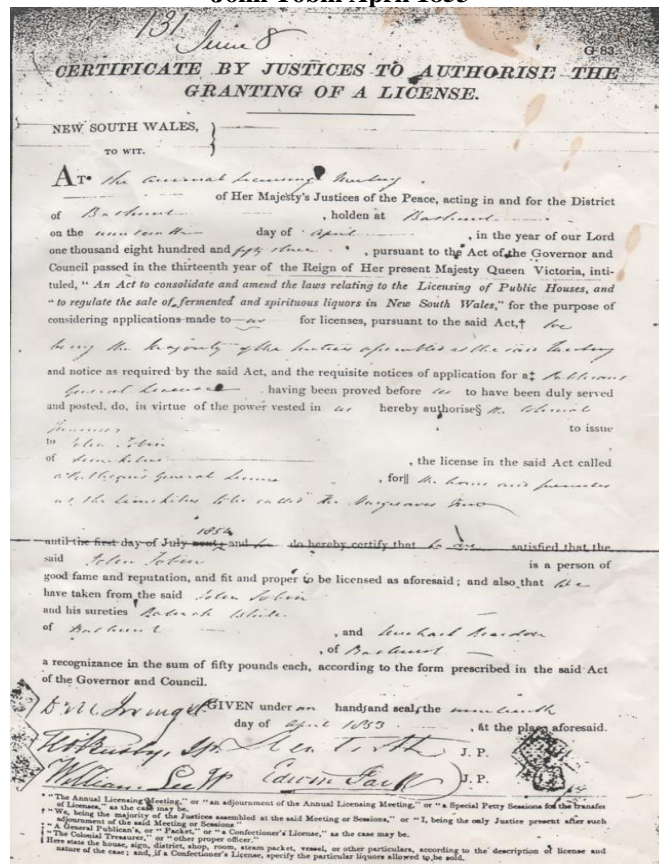 John Tobin April 1853
131
June 8
G 83.
CERTIFICATE BY JUSTICES TO AUTHORISE THE
GRANTING OF A LICENSE.
NEW SOUTH WALES,
TO WIT.
AT* the annual Licensing Meeting
of Her Majesty's Justices of the Peace, acting in and for the District
of Bathurst , holden at Bathurst
on the nineteenth day of April , in the year of our Lord
one thousand eight hundred and fifty three , pursuant to the Act of the Governor and
Council passed in the thirteenth year of the Reign of Her present Majesty Queen Victoria, inti-
tuled, " An Act to consolidate and amend the laws relating to the Licensing of Public Houses, and
" to regulate the sale of fermented and spirituous liquors in New South Wales," for the purpose of
considering applications made to us for licenses, pursuant to the said Act,† We
being the Majority of the Justices assembled at the said Meeting
and notice as required by the said Act, and the requisite notices of application for a‡ Publicans
General License having been proved before us to have been duly served
and posted, do, in virtue of the power vested in us hereby authorise§ the Colonial
Treasurer to issue
to John Tobin
of Limekilns , the license in the said Act called
a Publican's General License , for|| the house and premises
at the Limekilns to be called the Hargraves Inn
until the first day of July 1854 and we do hereby certify that we are satisfied that the
said John Tobin is a person of
good fame and reputation, and fit and proper to be licensed as aforesaid; and also that we
have taken from the said John Tobin
and his sureties White
of Bathurst , and Michael Reardon
, of Bathurst
a recognizance in the sum of fifty pounds each, according to the form prescribed in the said Act
of the Governor and Council.
GIVEN under our hands and seals, the nineteenth
day of April 1853 , at the place aforesaid.
J. P.
William Lee JP Edwin J. P.
* "The Annual Licensing Meeting," or "an adjournment of the Annual Licensing Meeting," or "a Special Petty Sessions for the transfer
of Licenses," as the case may be.
† "We, being the majority of the Justices assembled at the said Meeting or Sessions," or "I, being the only Justice present after such
adjournment of the said Meeting or Sessions."
‡ "A General Publican's, or "Packet," or "a Confectioner's License," as the case may be.
§ "The Colonial Treasurer," or "other proper officer."
|| Here state the house, sign, district, shop, room, steam packet, vessel, or other particulars, according to the description of license and
nature of the case; and, if a Confectioner's License, specify the particular liquors allowed to be sold.